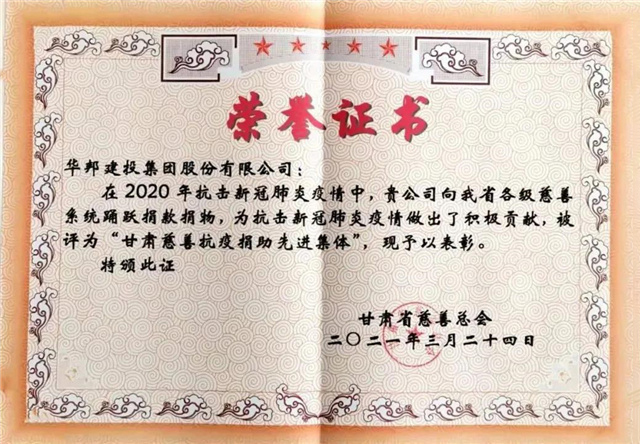 荣誉证书
华邦建投集团股份有限公司：
在2020年抗击新冠肺炎疫情中，贵公司向我省各级慈善
系统踊跃捐款捐物，为抗击新冠肺炎疫情做出了积极贡献，被
评为“甘肃慈善抗疫捐助先进集体”，现予以表彰。
特颁此证
甘肃省慈善总会
二〇二一年三月二十四日